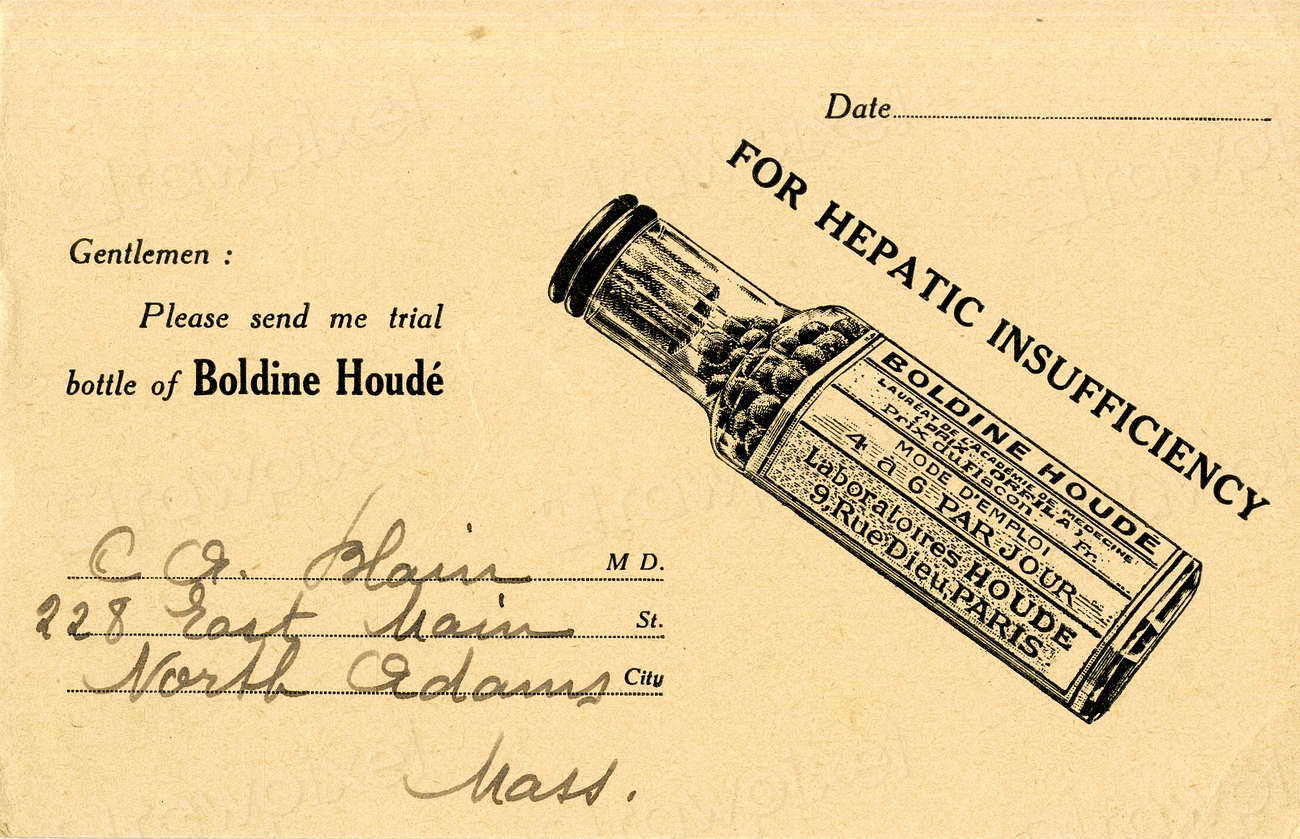 Date
FOR HEPATIC INSUFFICIENCY
Gentlemen :
Please send me trial
bottle of Boldine Houdé
BOLDINE HOUDÉ
LAURÉAT DE L'ACADÉMIE DE MÉDECINE
(PRIX ORFILA)
Prix du Flacon Fr.
MODE D'EMPLOI
4 à 6 PAR JOUR
Laboratoires HOUDÉ
9, Rue Dieu, PARIS.
C A. Blain M D.
228 East Main St.
North Adams City
Mass.